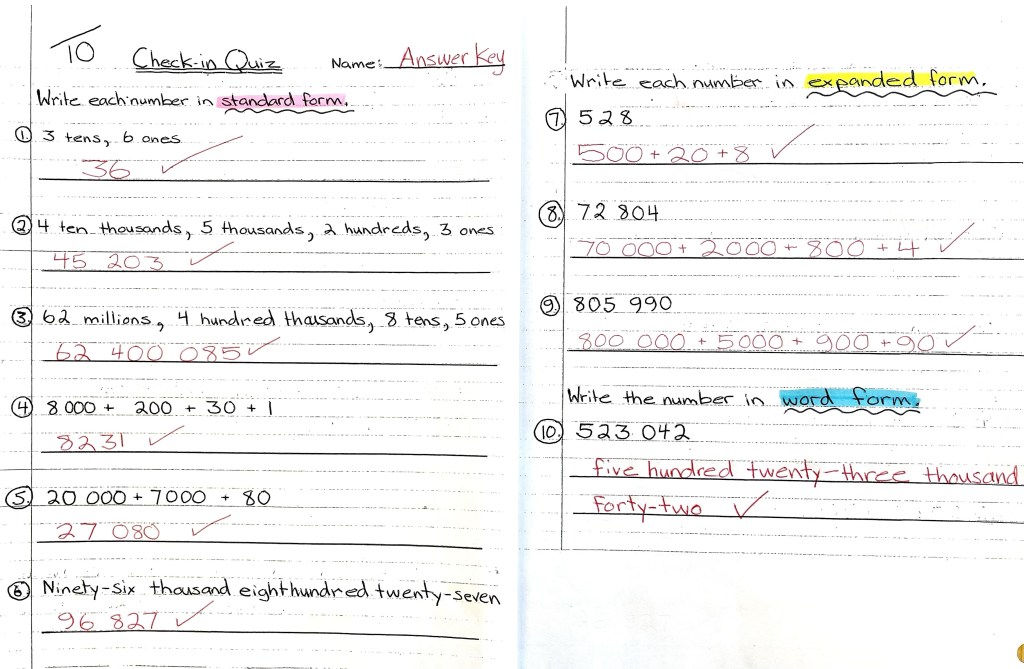 /10
Check-in Quiz Name: Answer Key
Write each number in standard form.
1. 3 tens, 6 ones
36 ✓
2. 4 ten thousands, 5 thousands, 2 hundreds, 3 ones
45 203 ✓
3. 62 millions, 4 hundred thousands, 8 tens, 5 ones
62 400 085 ✓
4. 8 000 + 200 + 30 + 1
8231 ✓
5. 20 000 + 7000 + 80
27 080 ✓
6. Ninety-six thousand eight hundred twenty-seven
96 827 ✓
Write each number in expanded form.
7. 528
500 + 20 + 8 ✓
8. 72 804
70 000 + 2000 + 800 + 4 ✓
9. 805 990
800 000 + 5000 + 900 + 90 ✓
Write the number in word form.
10. 523 042
five hundred twenty-three thousand
forty-two ✓